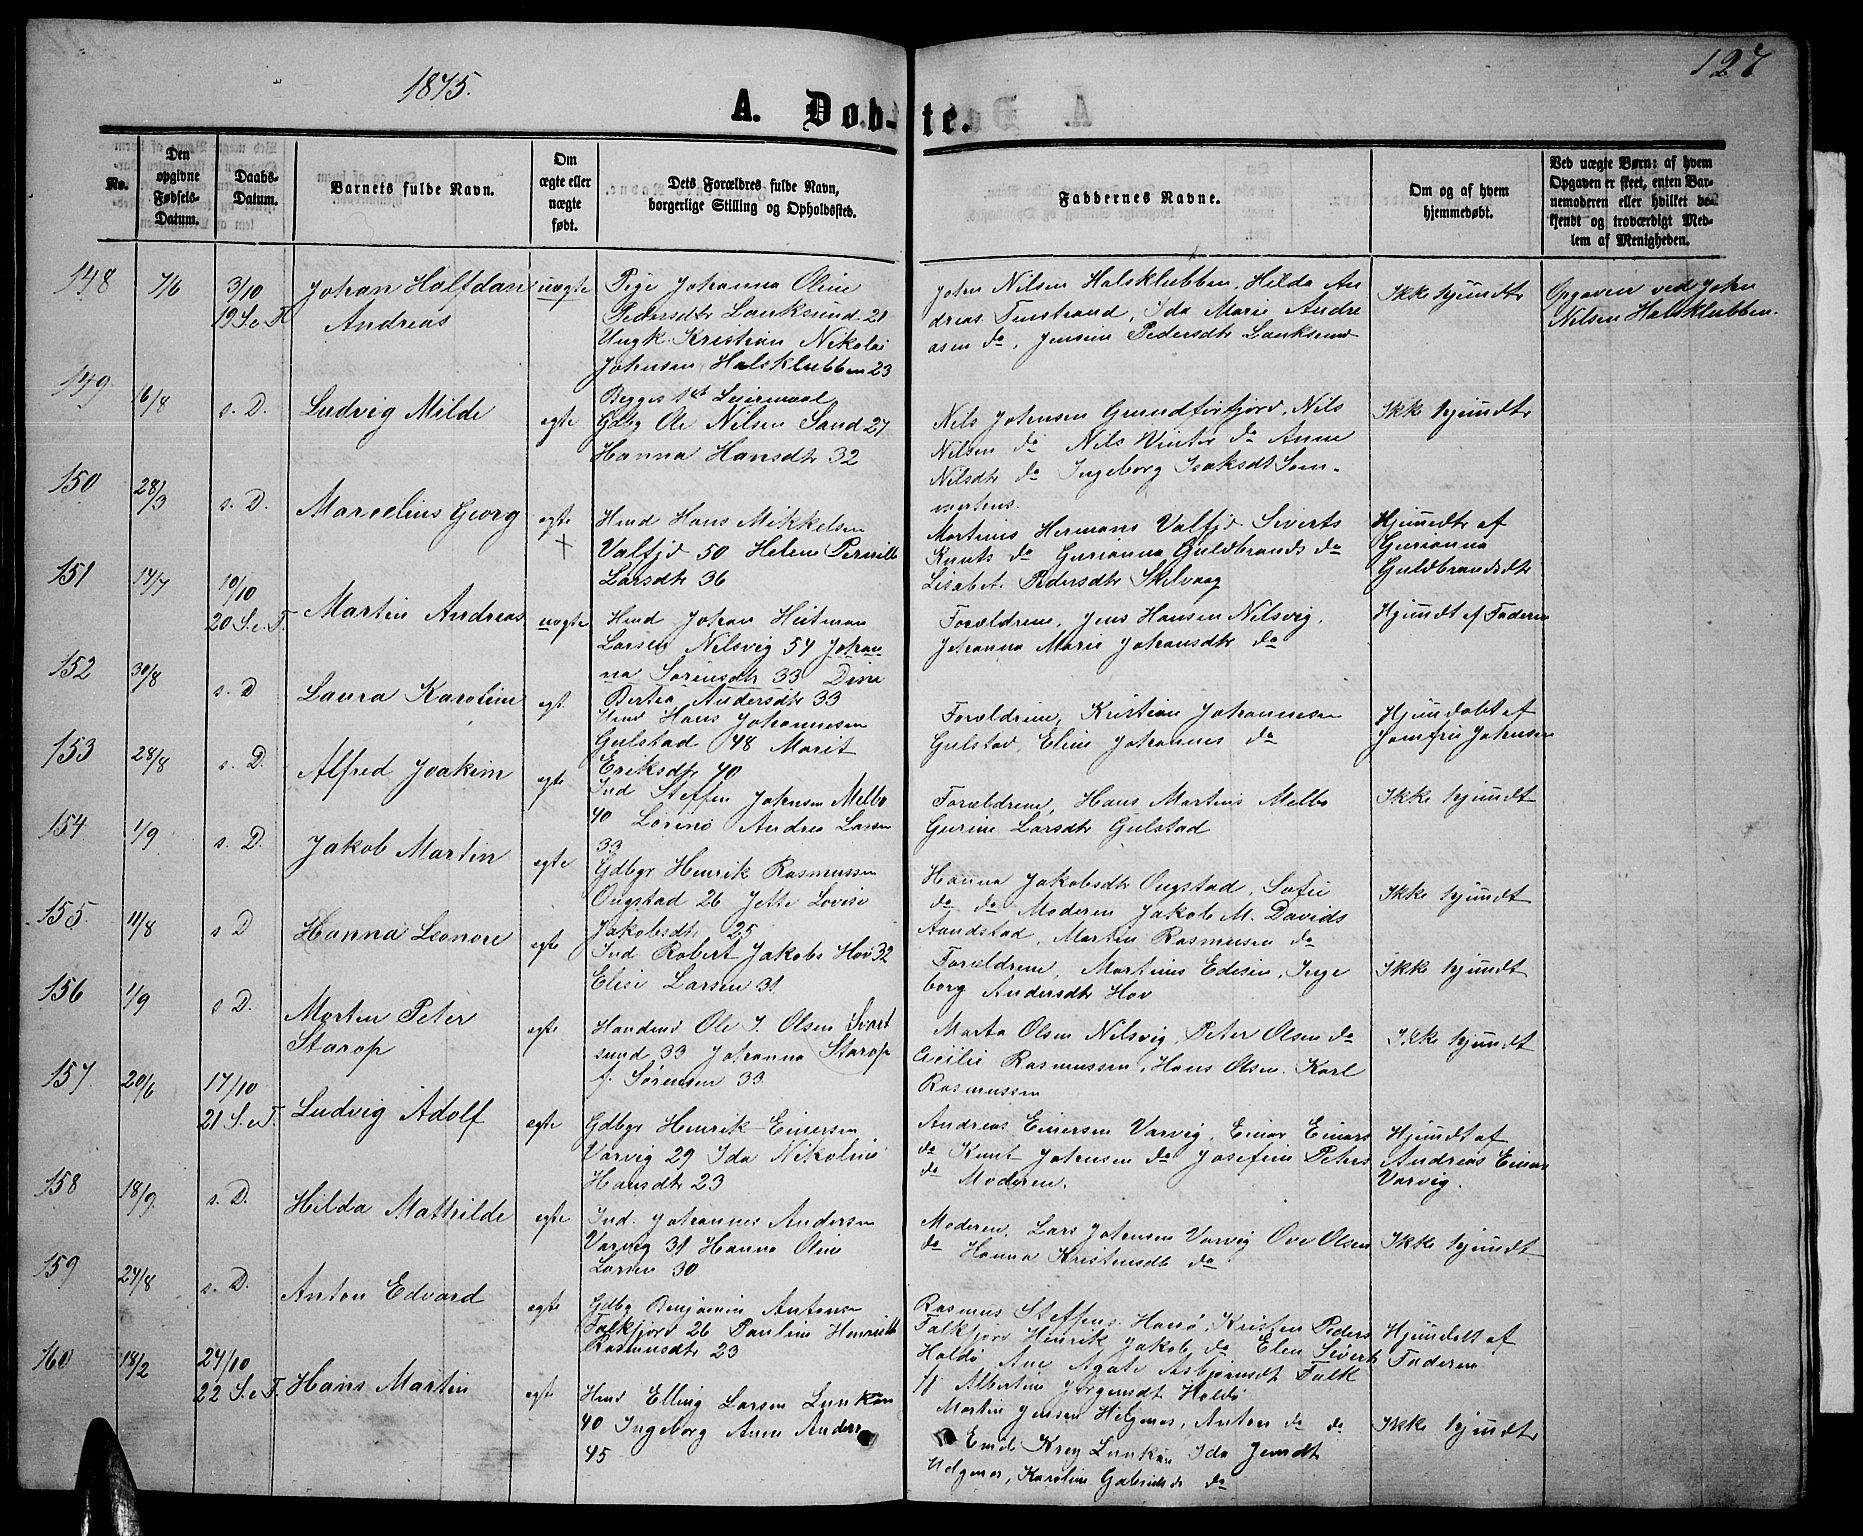 1875.
127
A. Døb-te.
No.
Den opgivne Fødsels-Datum.
Daabs-Datum.
Barnets fulde Navn.
Om ægte eller uægte født.
Dets Forældres fulde Navn, borgerlige Stilling og Opholdssted.
Faddernes Navne.
Om og af hvem hjemmedøbt.
Ved uægte Børn: af hvem Opgaven er skeet, enten Barnemoderen eller hvilket bekjendt og troværdigt Medlem af Menigheden.
148 7/6 3/10 19 S.e.
Johan Halfdan
Andreas
uægte
Pige Johanna Oline
Pedersdtr Lauksund 21
Ungk. Kristian Nikolai
Johnsen Halsklubben 23
Begges 1st Leiermaal
John Nilsen Halsklubben, Hilda An
dreas. Finstrand, Ida Marie Andre
asen do, Jensine Pedersdtr Lauksund
Ikke hjemdt
Opgaven ved John
Nilsen Halsklubben.
149 16/8 s. D.
Ludvig Milde
egte
Gdbg Ole Nilsen Sand 27
Hanna Hansdtr 32
Nils Johnsen Grundførfjord, Nils
Nilsen do Nils Winter do Anne
Nilsdtr do Ingeborg Isaksdt
Ikke hjemdt
150 28/3 s. D.
Marcelius Georg
egte
Hmd Hans Mikkelsen
Valfjd 50 Helene Pernille
Larsdtr 36
Martines Hermans Valfjd Siverts
Knuts do Gurianna Guldbrands do
Lisabet. Pedersdtr Skilvaag
Hjemdt af
Gurianna
Guldbrandsdtr
151 14/7 10/10 20 S.e.T.
Martin Andreas
uægte
Hmd Johan Hitman
Larsen Nilsvig 54 Johan
na Sørensdtr 33 Dine
Bertea Andersdtr 33
Forældrene, Jens Hansen Nilsvig,
Johanna Marie Johansdtr do
Hjemdt af Faderen
152 30/8 s. D
Laura Karoline
egt
Hmd Hans Johannesen
Gulstad 48 Marit
Eriksdtr 40
Forældrene, Kristian Johannesen
Gulstad, Eline Johannes do
Hjemdøbt af
Jomfru Johnsen
153 28/8 s. D.
Alfred Joakim
egte
Ind Steffen Johnsen Melbo
40 Andrea Larsen
33
Forældrene, Hans Martins Melbo
Gurine Larsdtr Gulstad
Ikke hjemdt
154 1/9 s. D.
Jakob Martin
egte
Gdbgr Henrik Rasmussen
Ougstad 26 Jette Lovise
Jakobsdtr 25
Hanna Jakobsdtr Ougstad, Sofie
do do Moderen Jakob M. Davids
Aandstad, Morten Rasmussen do
Ikke hjemdt
155 11/8 s D
Hanna Leonore
egte
Ind Robert Jakobs Hov 32
Elise Larsen 31
Forældrene, Martines Edisen, Inge
borg Andersdtr Hov
Ikke hjemdt
156 1/9 s D.
Morten Peter
Starop
egte
Handmd Ole J. Olsen Svart
sund 33 Johanna Starop
f. Sørensen 33
Marta Olsen Nilsvig, Peter Olsen do
Cecilie Rasmussen, Hans Olsen. Karl
Rasmussen
Ikke hjemdt
157 20/6 17/10 21 S.e.T.
Ludvig Adolf
egte
Gdbgr Henrik Einersen
Varvig 29 Ida Nikoline
Hansdtr 23
Andreas Einersen Varvig, Einar Einars
do Knut Johnsen do Josefine Peters
do Moderen.
Hjemdt af
Andreas Einar
Varvig.
158 18/9 s. D.
Hilda Mathilde
egte
Ind. Johannes Andersen
Varvig 31 Hanna Oline
Larsen 30
Moderen, Lars Johnsen Varvig Ove Olsen
do Hanna Kristensdtr do
Ikke hjemdt
159 24/8 s. D.
Anton Edvard
egte
Gdbg Benjamin Antonsen
Falkfjord 26 Pauline Henrikke
Rasmusdtr 23
Rasmus Steffens. Hanø, Kristen Peders
Falkfjord Henrik Jakob. do Elen Sivert
Haldø Ane Agate Asbjørnsdt Falk
fj Albertine Jørgensdt Haldø
Hjemdøbt af
Faderen
160 18/2 24/10 22 S.e.T.
Hans Martin
egte
Hmd Elling Larsen Lunkan
40 Ingeborg Anne Anders
45
Martin Jensen Helgenes, Anton do do
Emil Krey Lunkan Ida Jensdt
Helgenes, Karoline Gabriels do
Ikke hjemdt